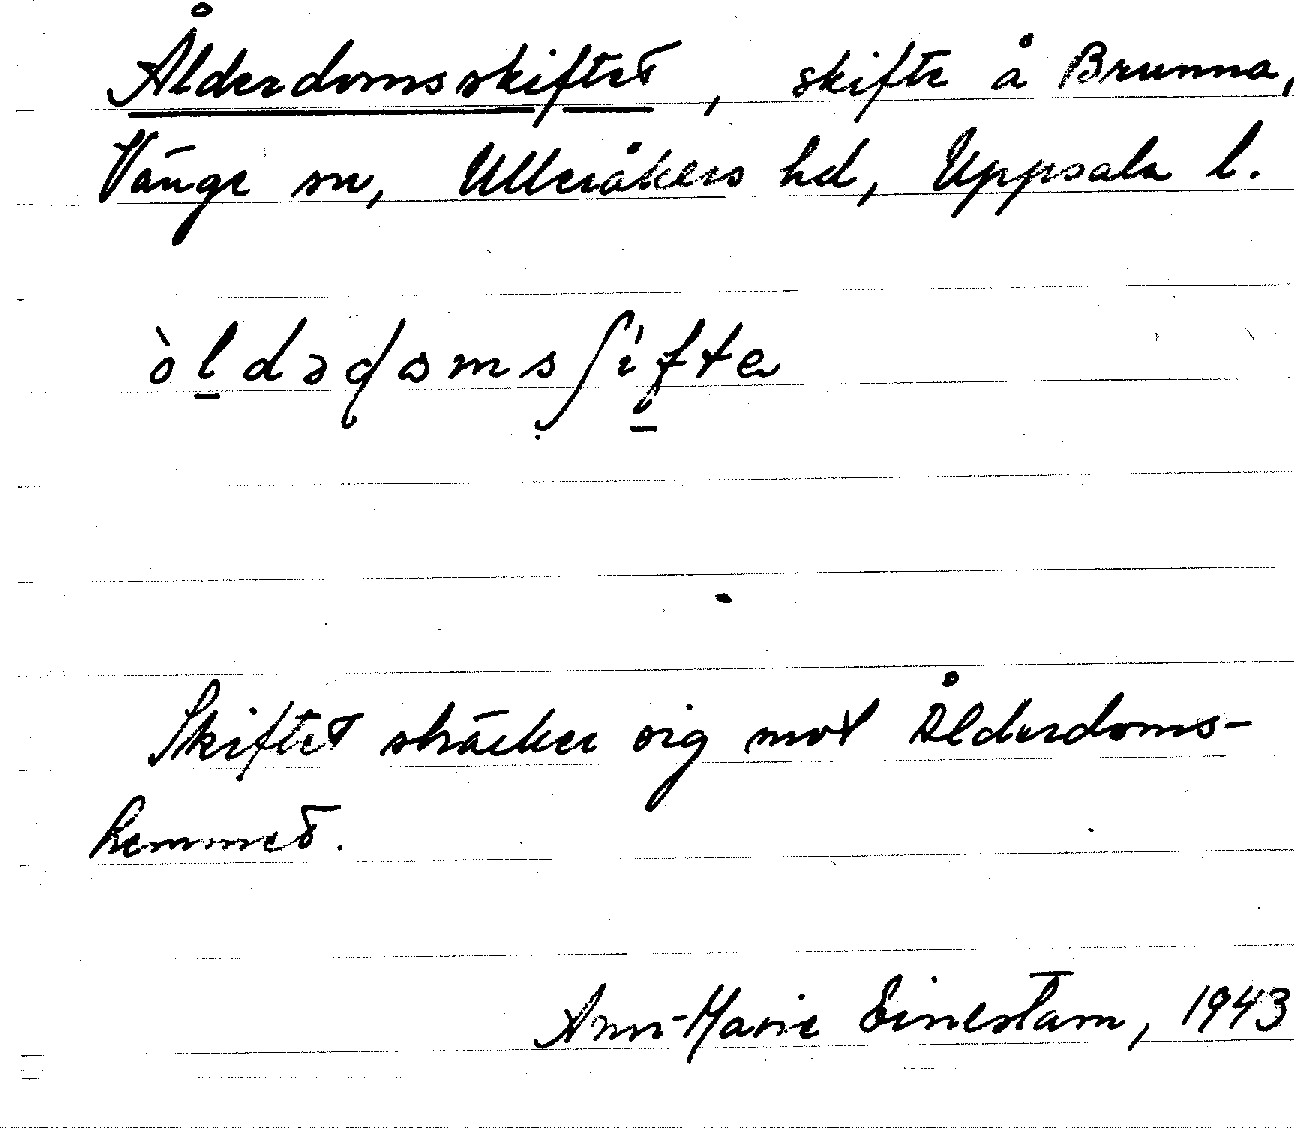 Ålderdomsskiftet, skifte å Brunna,
Vänge sn, Ulleråkers hd, Uppsala l.
òldədɷmsʃìfte
Skiftet sträcker sig mot Ålderdoms-
hemmet.
Ann-Marie Einestam, 1943